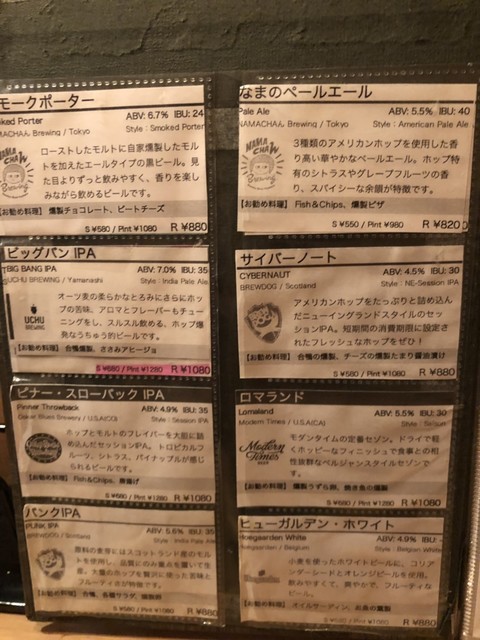 モークポーター
oked Porter
ABV: 6.7% IBU: 24
MACHAん Brewing / Tokyo
Style : Smoked Porter
ローストしたモルトに自家燻製したモル
トを加えたエールタイプの黒ビール。見
た目よりずっと飲みやすく、香りを楽し
みながら飲めるビールです。
【お勧め料理】 燻製チョコレート、ビートチーズ
S ¥580 / Pint ¥1080 R ¥880
ビッグバン IPA
BIG BANG IPA
ABV: 7.0% IBU: 35
UCHU BREWING / Yamanashi
Style : India Pale Ale
UCHU
BREWING
オーツ麦の柔らかなとろみにさらにホッ
プの苦味、アロマとフレーバーもチュー
ニングをし、スルスル飲める、ホップ爆
発なうちゅう的ビールです。
【お勧め料理】 合鴨燻製、ささみアヒージョ
S ¥680 / Pint ¥1280 R ¥1080
ピナー・スローバック IPA
Pinner Throwback
ABV: 4.9% IBU: 35
Oskar Blues Brewery / U.S.A(CO)
Style : Session IPA
ホップとモルトのフレイバーを大胆に詰
め込んだセッションIPA。トロピカルフ
ルーツ、シトラス、パイナップルが感じ
られるビールです。
【お勧め料理】 Fish&Chips、唐揚げ
S ¥680 / Pint ¥1280 R ¥1080
パンクIPA
PUNK IPA
ABV: 5.6% IBU: 35
BREWDOG / Scotland
Style : India Pale Ale
原料の麦芽にはスコットランド産のモル
トを使用し、品質にのみ重点を置いて生
産。大量のホップを贅沢に使った苦味と
フルーティさが特徴です。
【お勧め料理】 合鴨、各種サラダ、燻製
R ¥880
なまのペールエール
Pale Ale
ABV: 5.5% IBU: 40
NAMACHAん Brewing / Tokyo
Style : American Pale Ale
NAMA
CHAん
Brewing
3種類のアメリカンホップを使用した香
り高い華やかなペールエール。ホップ特
有のシトラスやグレープフルーツの香
り、スパイシーな余韻が特徴です。
【お勧め料理】 Fish&Chips、燻製ピザ
S ¥550 / Pint ¥980 R ¥820
サイバーノート
CYBERNAUT
ABV: 4.5% IBU: 30
BREWDOG / Scotland
Style : NE-Session IPA
アメリカンホップをたっぷりと詰め込ん
だニューイングランドスタイルのセッ
ションIPA。短期間の消費期限に設定さ
れたフレッシュなホップをぜひ！
【お勧め料理】 合鴨の燻製、チーズの燻製たまり醤油漬け
S ¥580 / Pint ¥1080 R ¥880
ロマランド
Lomaland
ABV: 5.5% IBU: 30
Modern Times / U.S.A(CA)
Style : Saison
Modern
Times
BEER
モダンタイムの定番セゾン。ドライで軽
くホッピーなフィニッシュで食事との相
性抜群なベルジャンスタイルセゾンで
す。
【お勧め料理】 燻製うずら卵、焼き魚の燻製
S ¥680 / Pint ¥1280 R ¥1080
ヒューガルデン・ホワイト
Hoegaarden White
ABV: 4.9% IBU: -
Hoegaarden / Belgium
Style : Belgian White
小麦を使ったホワイトビールに、コリア
ンダーシードとオレンジピールを使用。
飲みやすくて、爽やかで、フルーティな
ビール。
【お勧め料理】 オイルサーディン、お魚の燻製
S ¥580 / Pint ¥1080 R ¥880